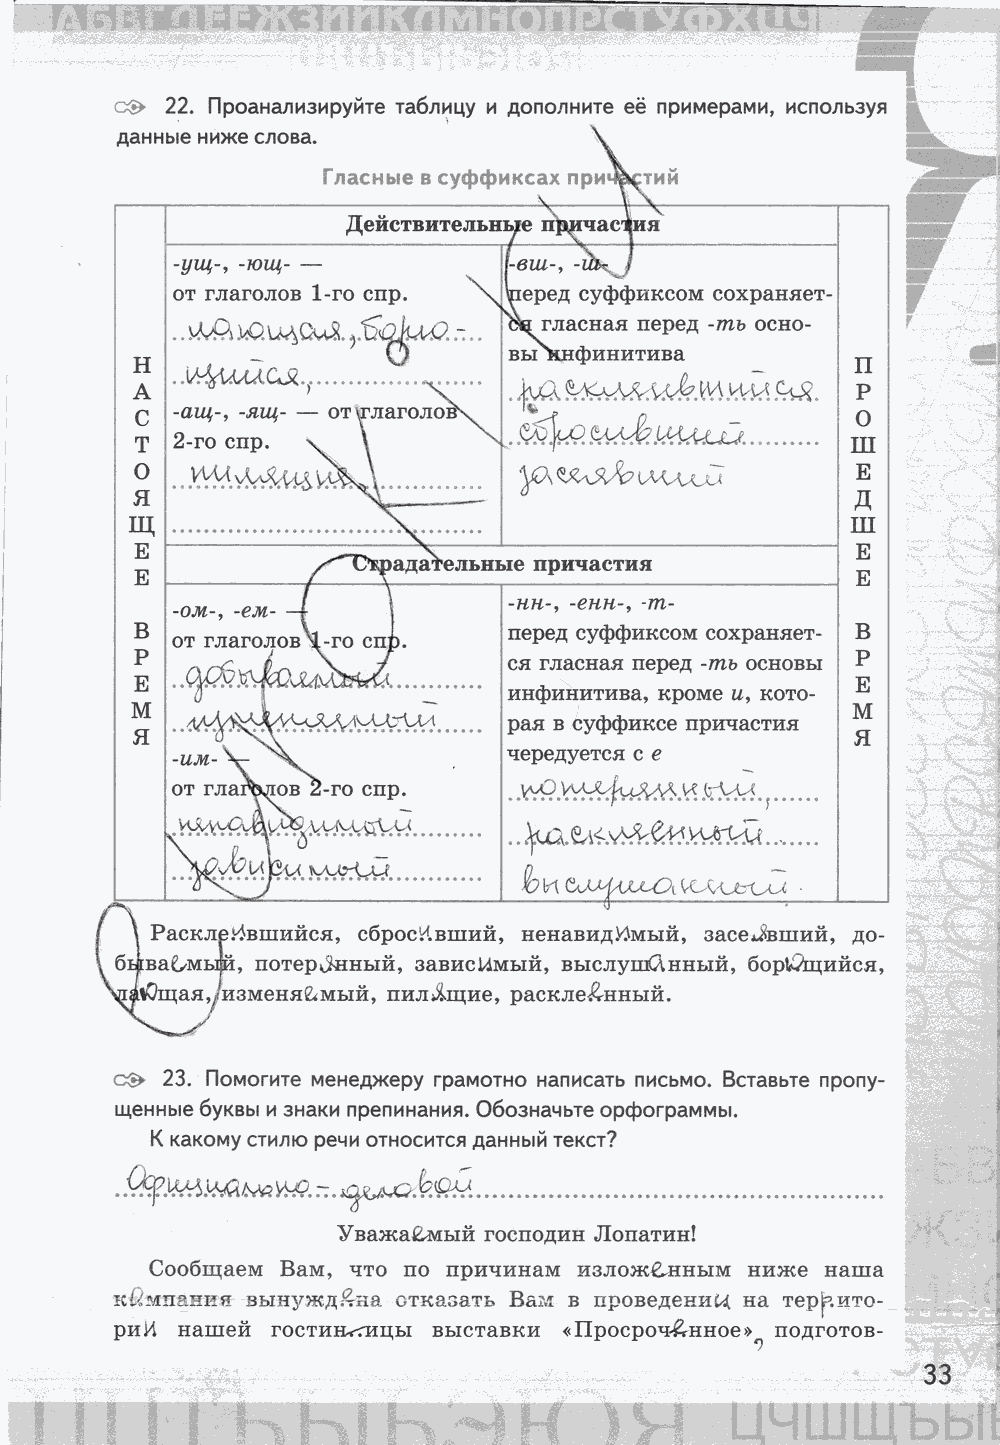 АБВГДЕЁЖЗИЙКЛМНОПРСТУФХЦЧ
22. Проанализируйте таблицу и дополните её примерами, используя
данные ниже слова.
Гласные в суффиксах причастий
Действительные причастия
НАСТОЯЩЕЕ ВРЕМЯ
-ущ-, -ющ- —
от глаголов 1-го спр.
лающая, борю-
щийся,
-ащ-, -ящ- — от глаголов
2-го спр.
пилящие,
-вш-, -ш-
перед суффиксом сохраняет-
ся гласная перед -ть осно-
вы инфинитива
расклеившийся
сбросивший
засеявший
ПРОШЕДШЕЕ ВРЕМЯ
Страдательные причастия
-ом-, -ем- —
от глаголов 1-го спр.
добываемый
изменяемый
-им- —
от глаголов 2-го спр.
ненавидимый
зависимый
-нн-, -енн-, -т-
перед суффиксом сохраняет-
ся гласная перед -ть основы
инфинитива, кроме и, кото-
рая в суффиксе причастия
чередуется с е
потерянный,
расклеенный
выслушанный.
Расклеившийся, сбросивший, ненавидимый, засеявший, до-
бываемый, потерянный, зависимый, выслушанный, борющийся,
лающая, изменяемый, пилящие, расклеенный.
23. Помогите менеджеру грамотно написать письмо. Вставьте пропу-
щенные буквы и знаки препинания. Обозначьте орфограммы.
К какому стилю речи относится данный текст?
Официально-деловой
Уважаемый господин Лопатин!
Сообщаем Вам, что по причинам изложенным ниже наша
компания вынуждена отказать Вам в проведении на террито-
рии нашей гостин..ицы выставки «Просроченное», подготов-
33